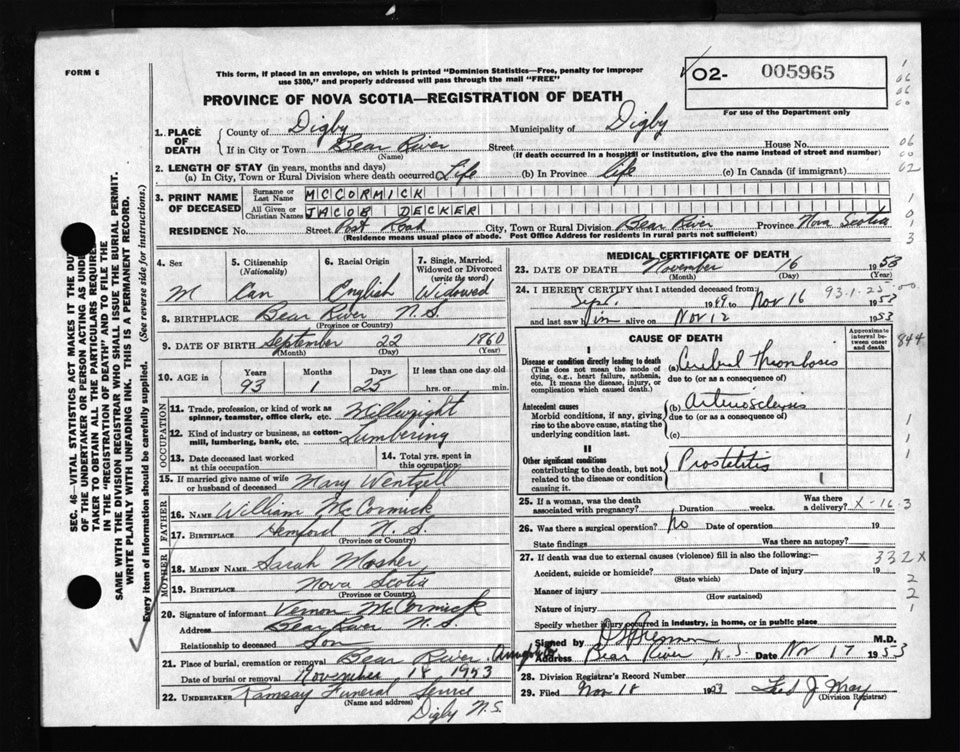 FORM 6
This form, if placed in an envelope, on which is printed "Dominion Statistics—Free, penalty for improper
use $300," and properly addressed will pass through the mail "FREE"
O2- 005965
For use of the Department only
PROVINCE OF NOVA SCOTIA—REGISTRATION OF DEATH
1. PLACE OF DEATH
County of Digby Municipality of Digby
If in City or Town Bear River Street House No.
(Name) (If death occurred in a hospital or institution, give the name instead of street and number)
2. LENGTH OF STAY (in years, months and days)
(a) In City, Town or Rural Division where death occurred Life (b) In Province Life (c) In Canada (if immigrant)
3. PRINT NAME OF DECEASED
Surname or Last Name MCCORMICK
All Given or Christian Names JACOB DECKER
RESIDENCE No. Street Post Road City, Town or Rural Division Bear River Province Nova Scotia
(Residence means usual place of abode. Post Office Address for residents in rural parts not sufficient)
4. Sex M
5. Citizenship (Nationality) Can
6. Racial Origin English
7. Single, Married, Widowed or Divorced (write the word) Widowed
8. BIRTHPLACE Bear River N.S.
(Province or Country)
9. DATE OF BIRTH September 22 1860
(Month) (Day) (Year)
10. AGE in Years 93 Months 1 Days 25 If less than one day old hrs. or min.
OCCUPATION
11. Trade, profession, or kind of work as spinner, teamster, office clerk, etc. Millwright
12. Kind of industry or business, as cotton-mill, lumbering, bank, etc. Lumbering
13. Date deceased last worked at this occupation
14. Total yrs. spent in this occupation
15. If married give name of wife or husband of deceased Mary Wentzell
FATHER
16. NAME William McCormick
17. BIRTHPLACE Hemford N.S.
(Province or Country)
MOTHER
18. MAIDEN NAME Sarah Mosher
19. BIRTHPLACE Nova Scotia
(Province or Country)
20. Signature of informant Vernon McCormick
Address Bear River N.S.
Relationship to deceased Son
21. Place of burial, cremation or removal Bear River
Date of burial or removal November 18 1953
22. UNDERTAKER Ramsay Funeral Service
(Name and address) Digby N.S.
MEDICAL CERTIFICATE OF DEATH
23. DATE OF DEATH November 16 1953
(Month) (Day) (Year)
24. I HEREBY CERTIFY that I attended deceased from:
93-1-25-00
Sept. 1949 to Nov 16 1953
and last saw him alive on Nov 12 1953
CAUSE OF DEATH
Approximate interval between onset and death
844
I
Disease or condition directly leading to death (a) Cerebral Thrombosis
(This does not mean the mode of dying, e.g., heart failure, asthenia, etc. It means the disease, injury, or complication which caused death.) due to (or as a consequence of)
Antecedent causes (b) Arteriosclerosis
Morbid conditions, if any, giving rise to the above cause, stating the underlying condition last. due to (or as a consequence of)
(c)
II
Other significant conditions Prostatitis
contributing to the death, but not related to the disease or condition causing it.
25. If a woman, was the death associated with pregnancy? Duration weeks. Was there a delivery? X-16-3
26. Was there a surgical operation? No Date of operation 19
State findings Was there an autopsy?
27. If death was due to external causes (violence) fill in also the following: 332X
Accident, suicide or homicide? Date of injury 19
(State which)
Manner of injury
(How sustained)
Nature of injury
Specify whether injury occurred in industry, in home, or in public place
Signed by M.D.
Address Bear River, N.S. Date Nov 17 1953
28. Division Registrar's Record Number
29. Filed Nov 18 1953 Fred J Wray
(Division Registrar)
SEC. 46—VITAL STATISTICS ACT MAKES IT THE DUTY
OF THE UNDERTAKER OR PERSON ACTING AS UNDER-
TAKER TO OBTAIN ALL THE PARTICULARS REQUIRED
IN THE "REGISTRATION OF DEATH" AND TO FILE THE
SAME WITH THE DIVISION REGISTRAR WHO SHALL ISSUE THE BURIAL PERMIT.
WRITE PLAINLY WITH UNFADING INK. THIS IS A PERMANENT RECORD.
Every item of information should be carefully supplied. (See reverse side for instructions.)